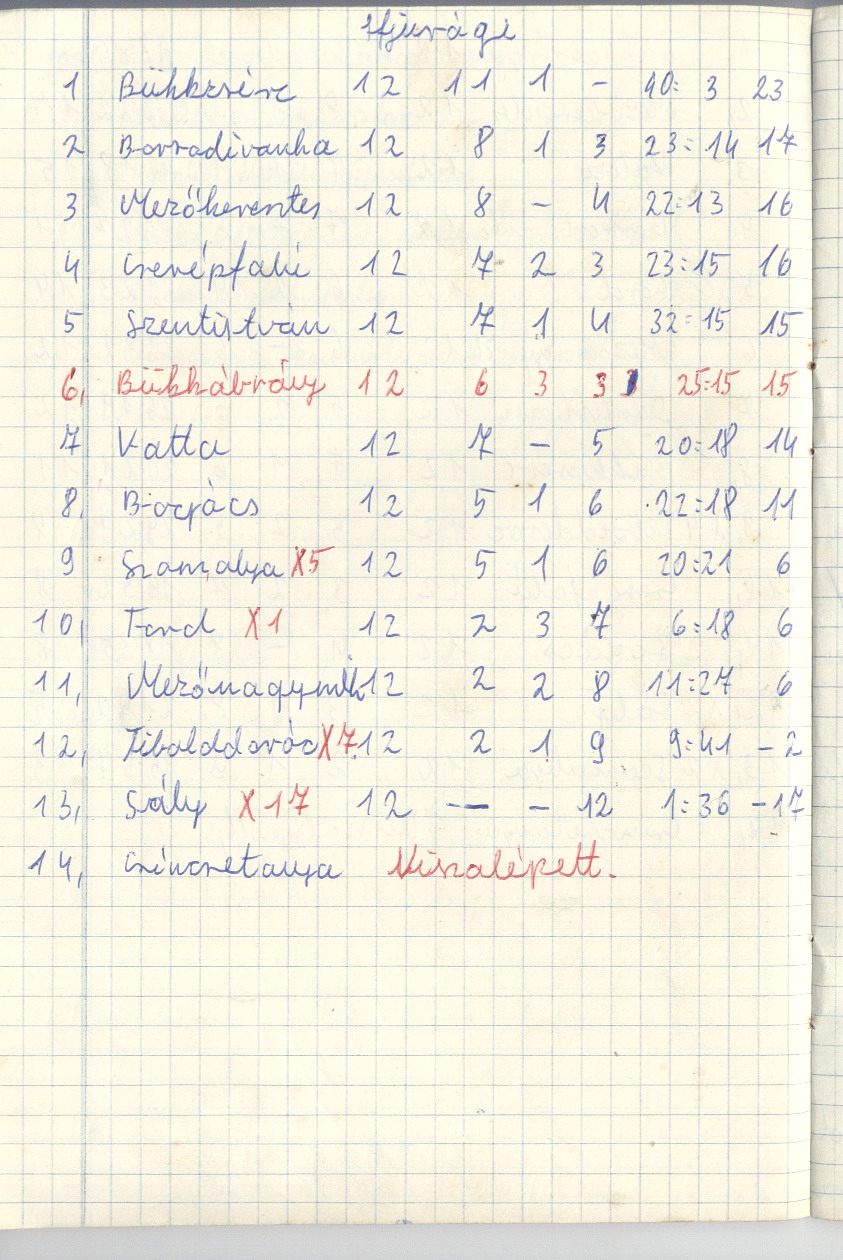 Ifjusági
1 Bükkzsérc 12 11 1 - 40:3 23
2 Borsodivánka 12 8 1 3 23:14 17
3 Mezőkeresztes 12 8 - 4 22:13 16
4 Cserépfalu 12 7 2 3 23:15 16
5 Szentistván 12 7 1 4 32:15 15
6, Bükkábrány 12 6 3 3 25:15 15
7 Vatta 12 7 - 5 20:18 14
8, Bogács 12 5 1 6 22:18 11
9 Szomolya X5 12 5 1 6 20:21 6
10, Tard X1 12 2 3 7 6:18 6
11, Mezőnagymih 12 2 2 8 11:27 6
12, Tibolddaróc X7 12 2 1 9 9:41 -2
13, Sály X17 12 - - 12 1:36 -17
14, Csincsetanya Visszalépett.